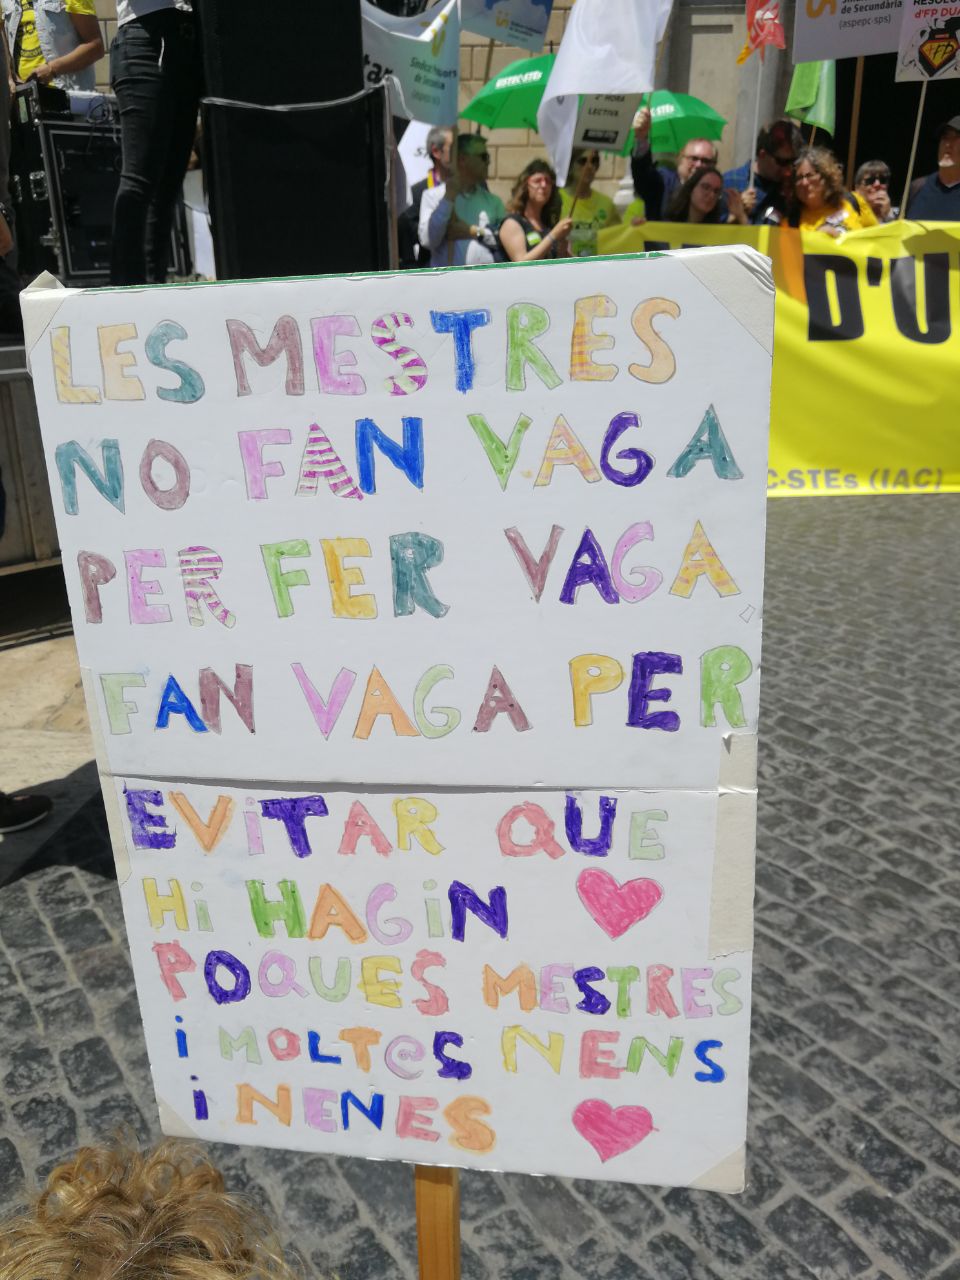 Sindicat Professors
de Secundària
(aspepc·sps)
de Secundària
(aspepc-sps)
d'FP DUAL
USTEC·STEs
HORA
LECTIVA
D'U
C·STEs (IAC)
LES MESTRES
NO FAN VAGA
PER FER VAGA,
FAN VAGA PER
EViTAR QUE
Hi HAGiN
POQUES MESTRES
i MOLT@S NENS
i NENES